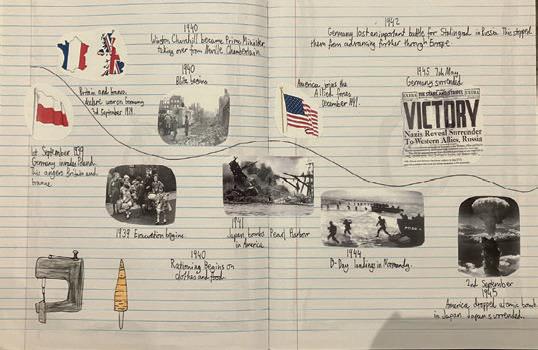 1940
Winston Churchill became Prime Minister
taking over from Neville Chamberlain.
1940
Blitz begins
Britain and France
declare war on Germany
3rd September 1939.
1st September 1939
Germany invades Poland.
This angers Britain and
France.
1939 Evacuation begins.
1940
Rationing Begins on
clothes and food.
1941
Japan bombs Pearl Harbor
in America.
1942
Germany lost an important battle for Stalingrad in Russia. This stopped
them from advancing further through Europe.
America joins the
Allied forces
December 1941.
1945 7th May
Germany surrendered
EXTRA THE STARS AND STRIPES EXTRA
VICTORY
Nazis Reveal Surrender
To Western Allies, Russia
1944
D-Day landings in Normandy.
2nd September
1945
America dropped atomic bomb
in Japan. Japan surrendered.